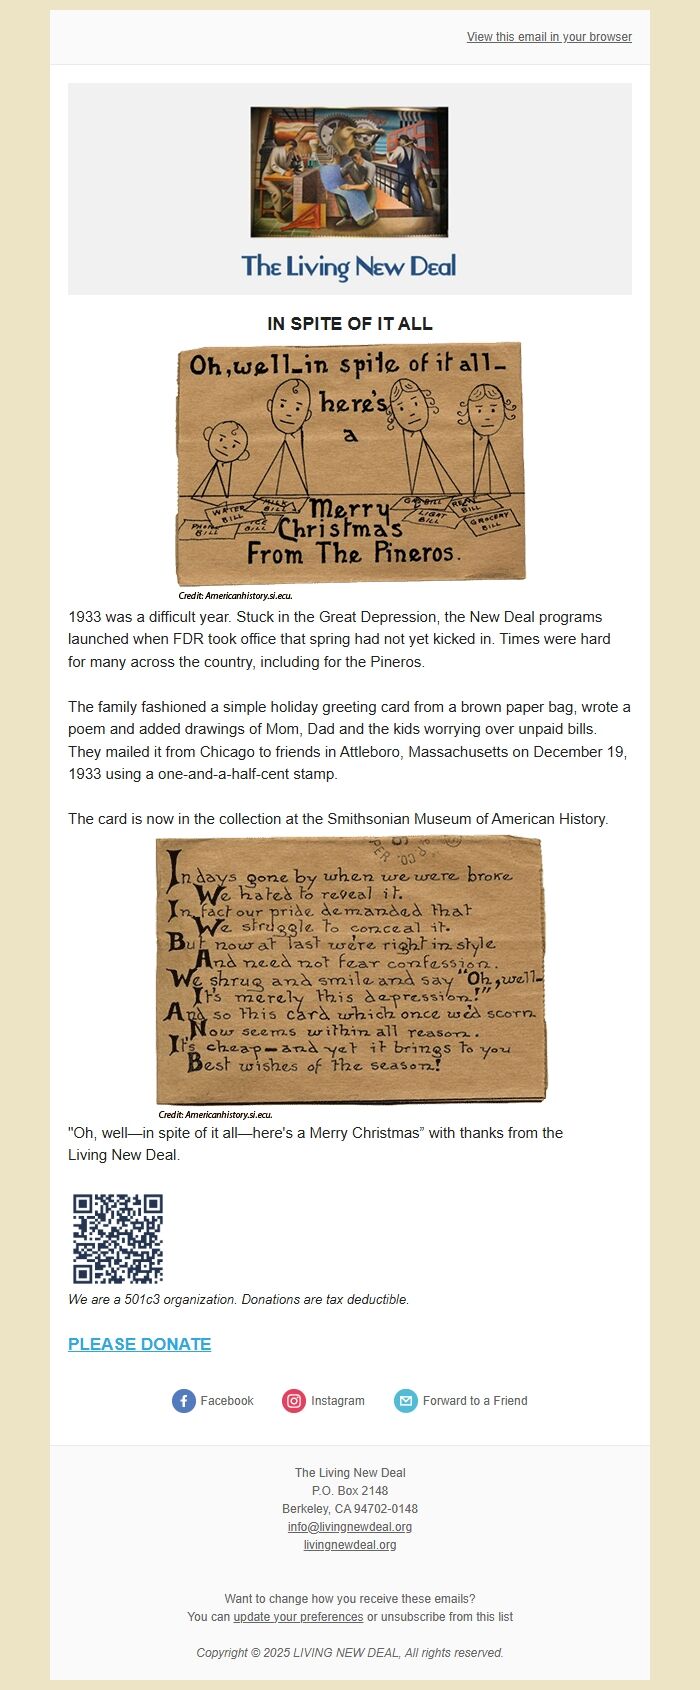 View this email in your browser
The Living New Deal
IN SPITE OF IT ALL
Oh, well—in spite of it all—
here's
a
Merry
Christmas
From The Pineros.
PHONE BILL
WATER BILL
ICE BILL
MILK BILL
GAS BILL
LIGHT BILL
RENT BILL
GROCERY BILL
Credit: Americanhistory.si.ecu.
1933 was a difficult year. Stuck in the Great Depression, the New Deal programs
launched when FDR took office that spring had not yet kicked in. Times were hard
for many across the country, including for the Pineros.
The family fashioned a simple holiday greeting card from a brown paper bag, wrote a
poem and added drawings of Mom, Dad and the kids worrying over unpaid bills.
They mailed it from Chicago to friends in Attleboro, Massachusetts on December 19,
1933 using a one-and-a-half-cent stamp.
The card is now in the collection at the Smithsonian Museum of American History.
In days gone by when we were broke
We hated to reveal it.
In fact our pride demanded that
We struggle to conceal it.
But now at last we're right in style
And need not fear confession.
We shrug and smile and say "Oh, well—
It's merely this depression!"
And so this card which once we'd scorn
Now seems within all reason.
It's cheap—and yet it brings to you
Best wishes of the season!
Credit: Americanhistory.si.ecu.
"Oh, well—in spite of it all—here's a Merry Christmas” with thanks from the
Living New Deal.
We are a 501c3 organization. Donations are tax deductible.
PLEASE DONATE
Facebook Instagram Forward to a Friend
The Living New Deal
P.O. Box 2148
Berkeley, CA 94702-0148
info@livingnewdeal.org
livingnewdeal.org
Want to change how you receive these emails?
You can update your preferences or unsubscribe from this list
Copyright © 2025 LIVING NEW DEAL, All rights reserved.